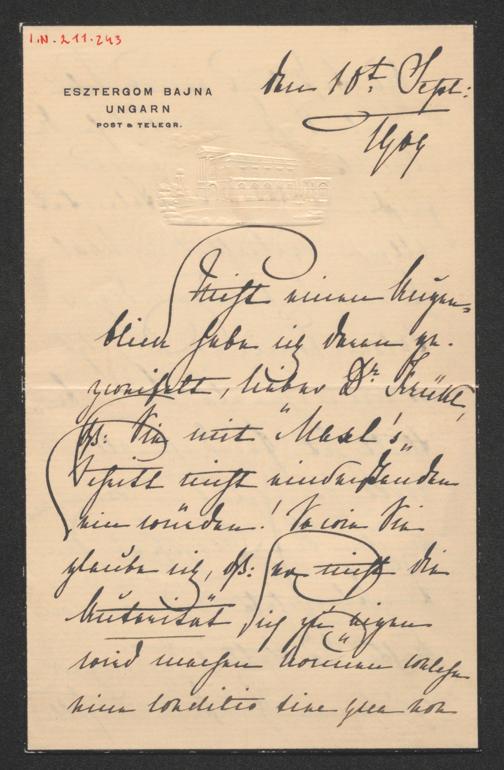 I.N. 211.243
ESZTERGOM BAJNA
UNGARN
POST & TELEGR.
den 10t Sept:
1909
Nicht einen Augen-
blick habe ich daran ge-
zweifelt, lieber Dr
dß: Sie mit
Schritt nicht einverstanden
sein würden! So wie Sie
glaube ich, dß: er nicht die
Autorität sich zu eigen
wird machen können welche
eine conditio sine qua non